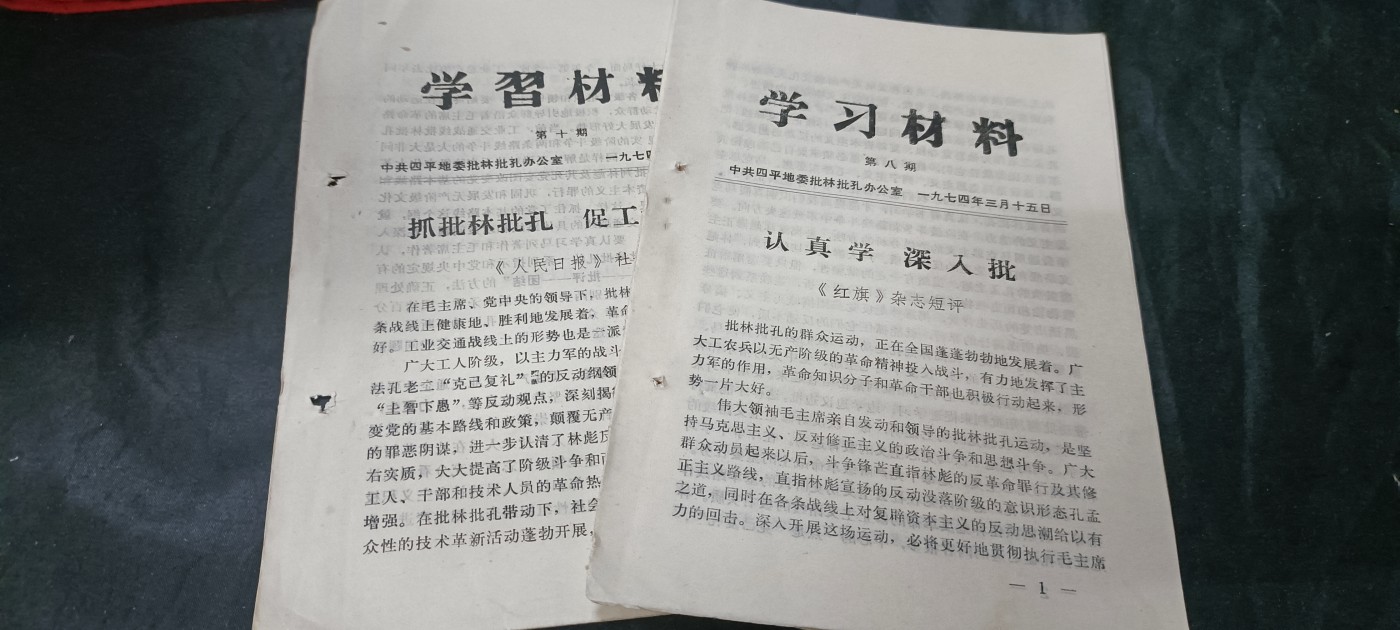 学習材料
第十期
中共四平地委批林批孔办公室 一九七四
抓批林批孔 促工
《人民日报》社
在毛主席、党中央的领导下，批林
条战线上健康地、胜利地发展着，革命
好。工业交通战线上的形势也是一派
广大工人阶级，以主力军的战斗
法孔老二“克己复礼”的反动纲领
“上智下愚”等反动观点，深刻揭
变党的基本路线和政策，颠覆无产
的罪恶阴谋，进一步认清了林彪反
右实质，大大提高了阶级斗争和
工人、干部和技术人员的革命热
增强。在批林批孔带动下，社会
众性的技术革新活动蓬勃开展，
学习材料
第八期
中共四平地委批林批孔办公室 一九七四年三月十五日
认真学 深入批
《红旗》杂志短评
批林批孔的群众运动，正在全国蓬蓬勃勃地发展着。广
大工农兵以无产阶级的革命精神投入战斗，有力地发挥了主
力军的作用，革命知识分子和革命干部也积极行动起来，形
势一片大好。
伟大领袖毛主席亲自发动和领导的批林批孔运动，是坚
持马克思主义、反对修正主义的政治斗争和思想斗争。广大
群众动员起来以后，斗争锋芒直指林彪的反革命罪行及其修
正主义路线，直指林彪宣扬的反动没落阶级的意识形态孔孟
之道，同时在各条战线上对复辟资本主义的反动思潮给以有
力的回击。深入开展这场运动，必将更好地贯彻执行毛主席
— 1 —